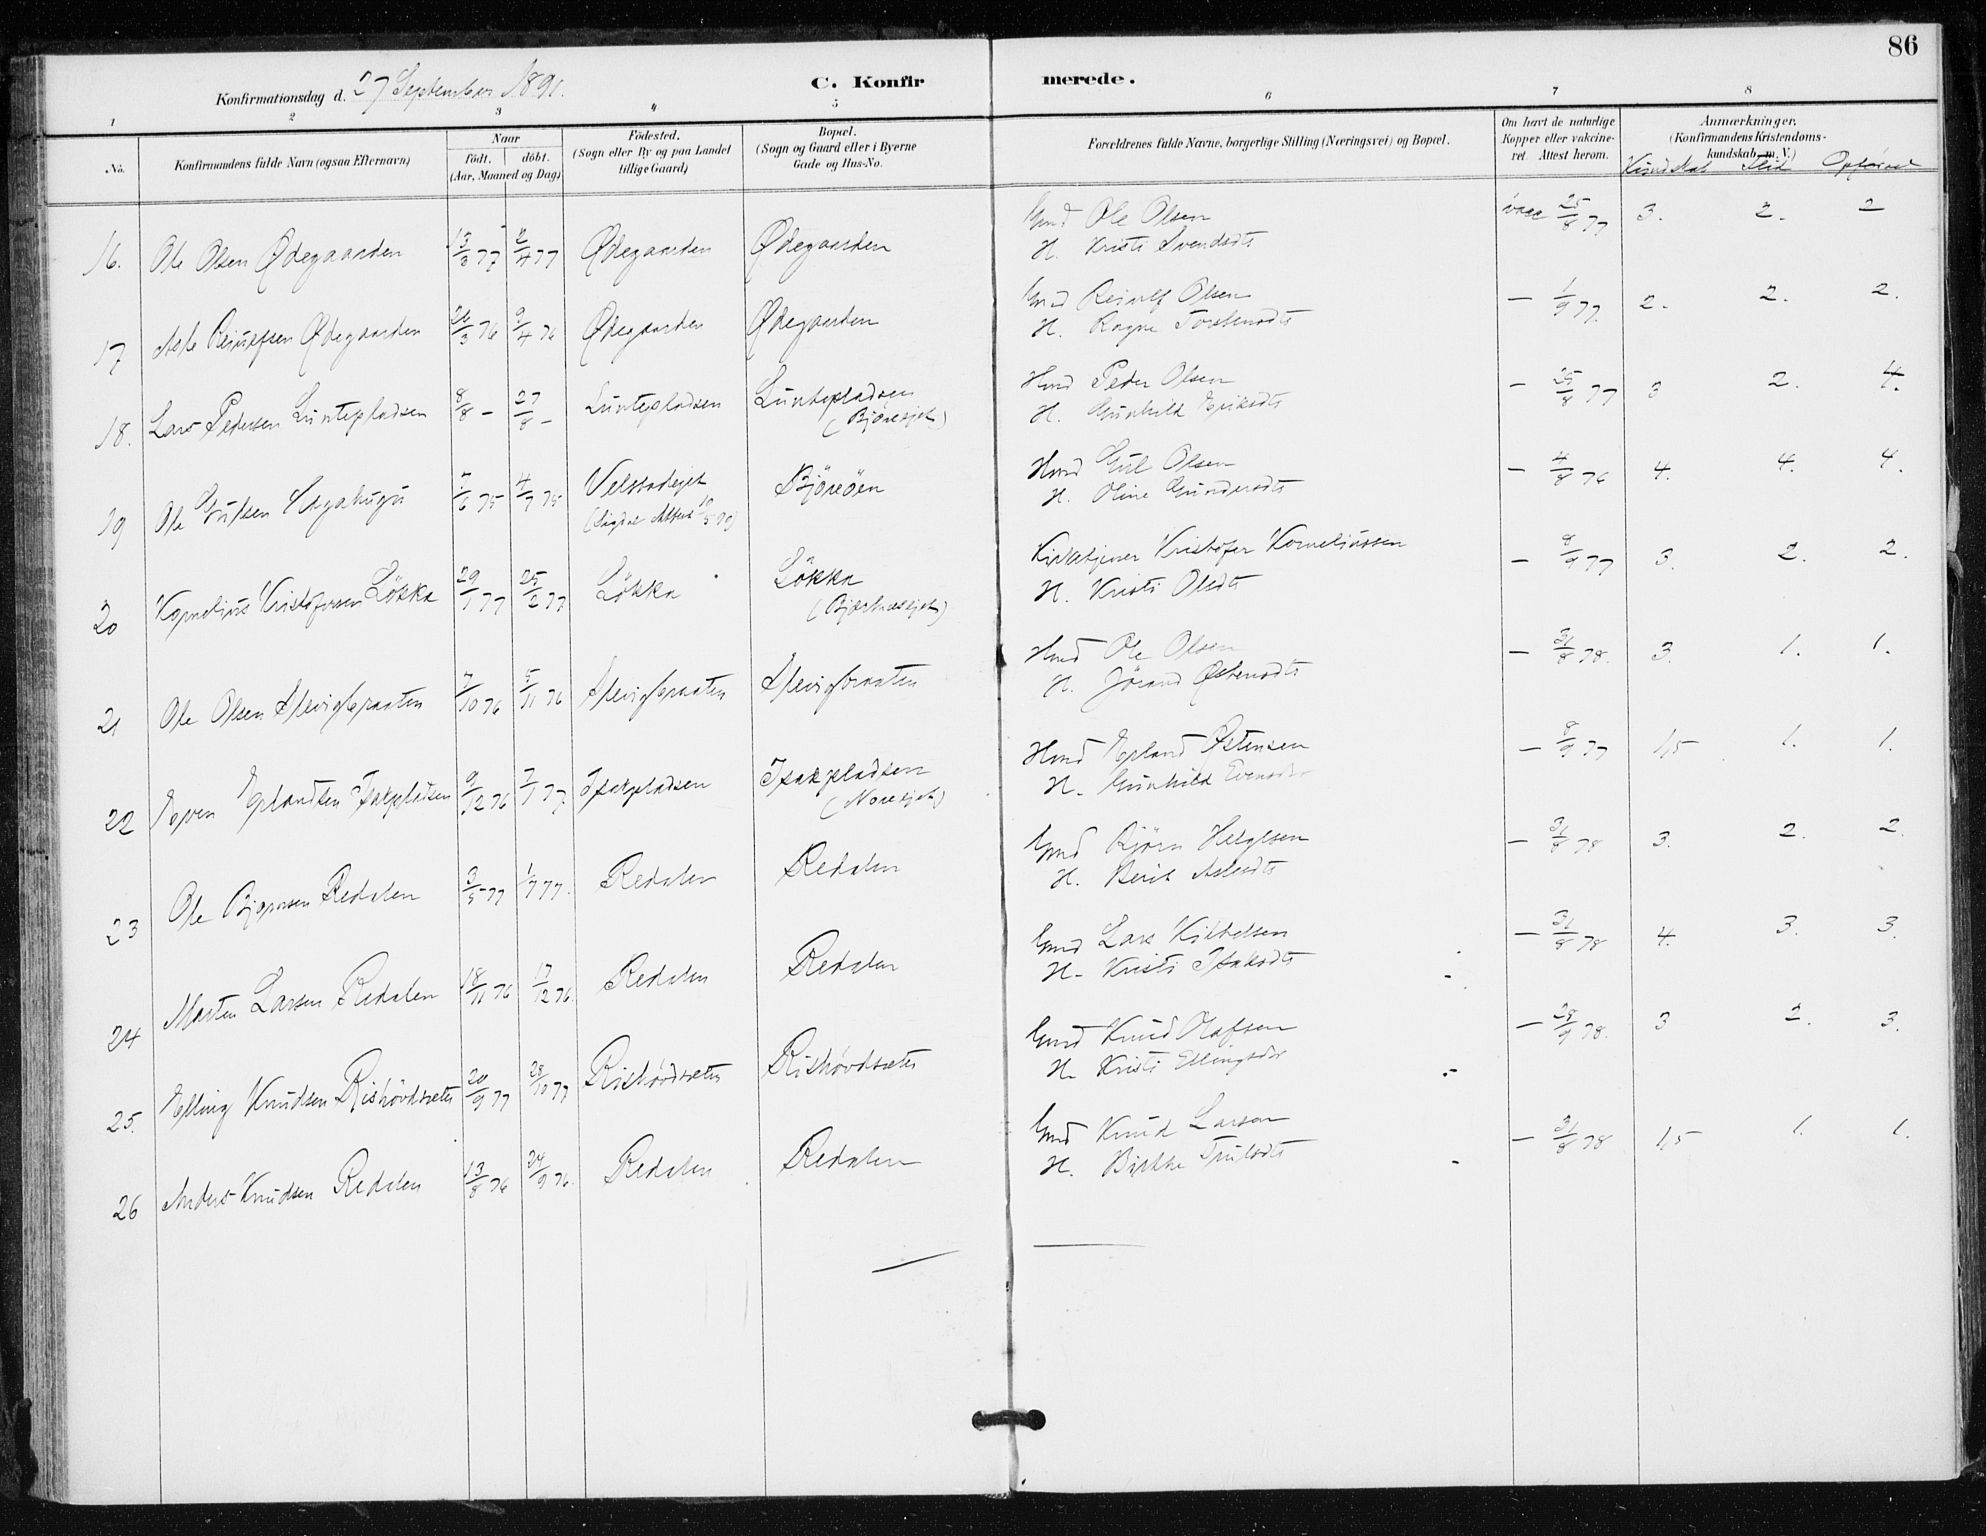 86
Konfirmationsdag d. 27 September 1891.
C. Konfirmerede.
1 2 3 4 5 6 7 8
No.
Konfirmandens fulde Navn (ogsaa Efternavn)
Naar
født. døbt.
(Aar, Maaned og Dag)
Fødested.
(Sogn eller By og paa Landet
tillige Gaard)
Bopæl.
(Sogn og Gaard eller i Byerne
Gade og Hus-No.
Forældrenes fulde Navne, borgerlige Stilling (Næringsvei) og Bopæl.
Om havt de naturlige
Kopper eller vakcine-
ret. Attest herom.
Anmærkninger,
(Konfirmandens Kristendoms-
kundskab m. V.)
Kundskab Flid Opførsel
16. Ole Olsen Ødegaarden 13/3 77 2/4 77 Ødegaarden Ødegaarden Gmd Ole Olsen vacc 25/8 77 3. 2. 2
H. Kristi Svendsdtr
17 Asle Reiulfsen Ødegaarden 26/3 76 9/4 76 Ødegaarden Ødegaarden Gmd Reiulf Olsen — 1/9 77. 2. 2. 2.
H. Ragne Torstensdtr
18. Lars Pedersen Luntepladsen 8/8 - 27/8 - Luntepladsen Luntepladsen Hmd Peder Olsen — 25/8 77 3 2. 4.
H. Gunhild Eriksdtr
19 Ole Gulsen Hagahugu 7/6 75 4/7 75 Björeöen Hmd Gul Olsen — 4/8 76 4. 4. 4.
(Sigdal Attest 10/5 90)
H. Oline Gundersdtr
20 Kornelius Kristofersen Lökka 29/1 77 25/2 77 Lökka Lökka Kirketjener Kristofer Korneliussen — 8/9 77 3. 2. 2.
H. Kristi Olsdtr
21 Ole Olsen Slevigbraaten 7/10 76 5/11 76 Slevigbraaten Slevigbraaten Hmd Ole Olsen — 31/8 78. 3. 1. 1.
H. Jörand Østensdtr
22 Even Erlandsen Isakpladsen 9/12 76 7/1 77. Isakpladsen Isakpladsen Hmd Erland Østensen — 8/9 77 1,5 1. 1.
(Noresjet)
H. Gunhild Evensdtr
23 Ole Bjørnsen Redalen 3/5 77 1/7 77. Redalen Redalen Gmd Bjørn Helgesen — 31/8 78 3. 2. 2.
H. Berit Aslesdtr
24 Morten Larsen Redalen 18/11 76 17/12 76. Redalen Redalen Gmd Lars Kittelsen — 31/8 78 4. 3. 3.
H. Kristi Isaksdtr
25. Elling Knudsen Rishövdsæter 20/9 77 28/10 77 Rishövdsæter Rishövdsæter Gmd Knud Olafsen — 28/9 78. 3 2. 3.
H. Kristi Ellingsdtr
26 Anders Knudsen Redalen 13/8 76 24/9 76. Redalen Redalen Gmd Knud Larsen — 31/8 78 1,5 1. 1.
H. Birthe Trulsdtr